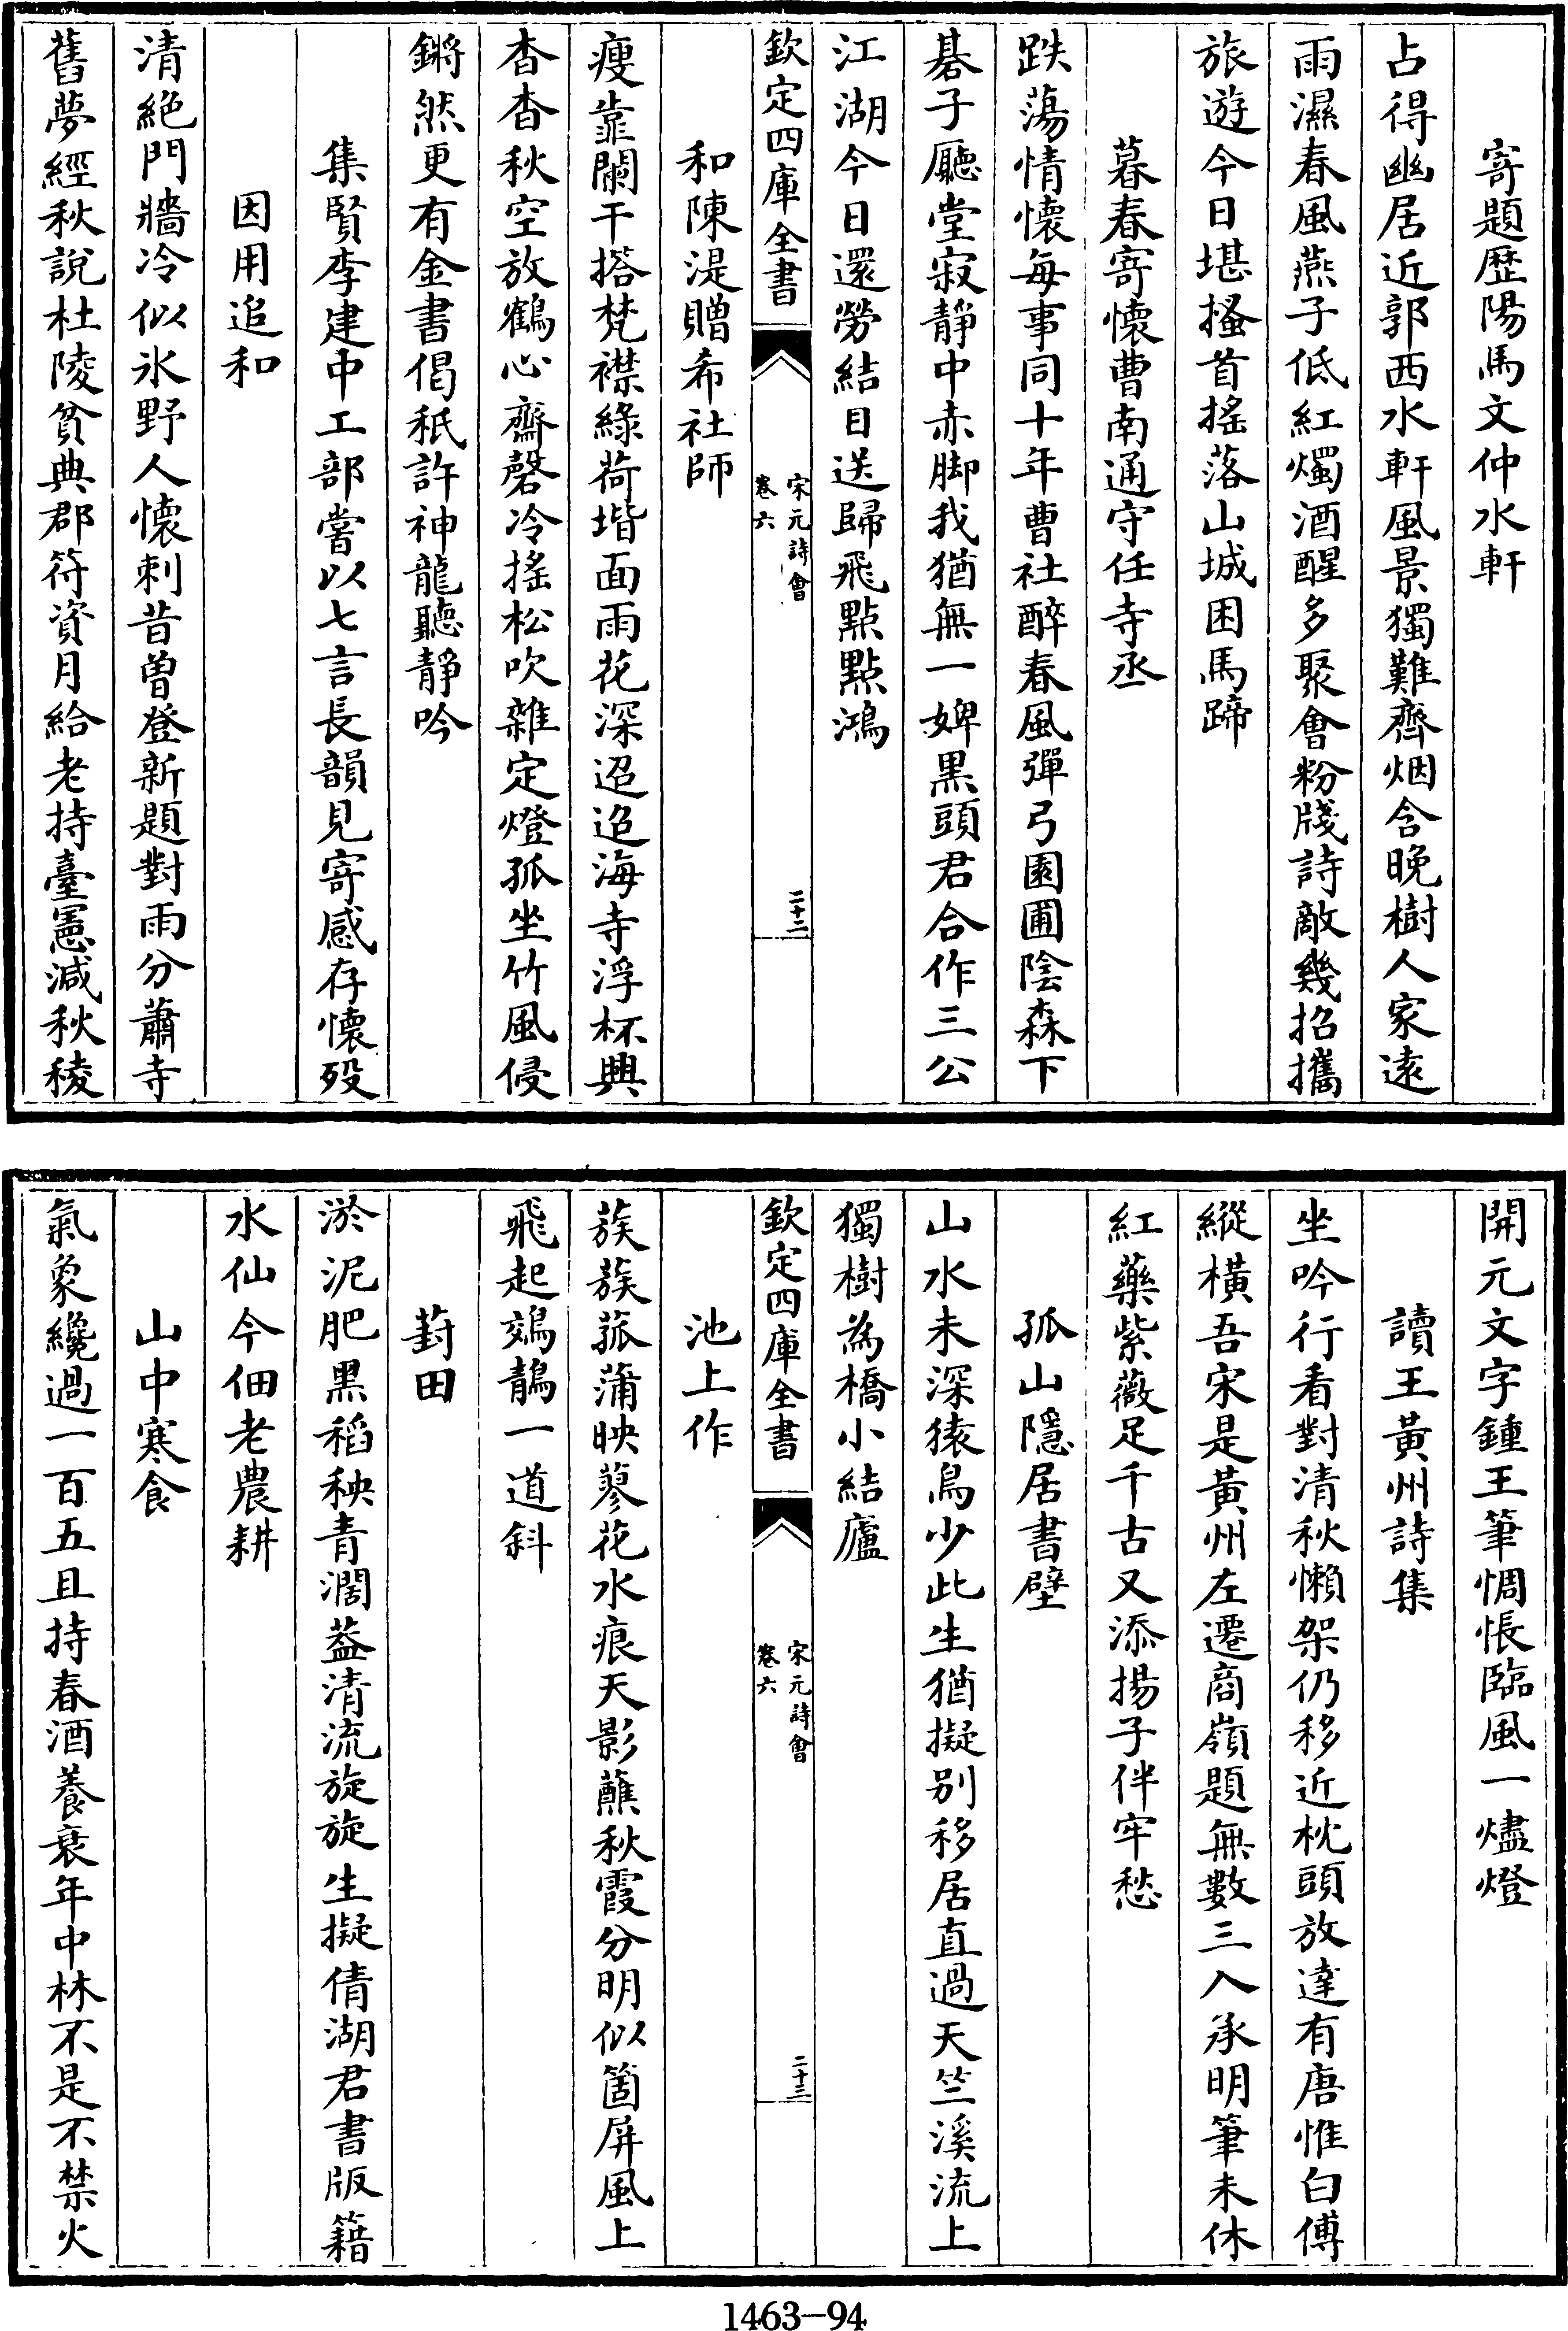 寄題歷陽馬文仲水軒
占得幽居近郭西水軒風景獨難齊烟含晚樹人家遠
雨濕春風燕子低紅燭酒醒多聚會粉牋詩敵幾招攜
旅遊今日堪搔首搖落山城困馬蹄
暮春寄懷曹南通守任寺丞
跌蕩情懷每事同十年曹社醉春風彈弓園圃陰森下
棊子廳堂寂靜中赤脚我猶無一婢黒頭君合作三公
江湖今日還勞結目送歸飛點點鴻
欽定四庫全書
宋元詩會
卷六
二十二
和陳湜贈希社師
瘦靠闌干搭梵襟綠荷堦面雨花深迢迢海寺浮杯興
杳杳秋空放鶴心齋磬冷搖松吹雜定燈孤坐竹風侵
鏘然更有金書偈秖許神龍聽靜吟
集賢李建中工部嘗以七言長韻見寄感存懷殁
因用追和
清絶門牆冷似氷野人懷刺昔曽登新題對雨分蕭寺
舊夢經秋說杜陵貧典郡符資月給老持臺憲減秋稜
開元文字鍾王筆惆悵臨風一燼燈
讀王黃州詩集
坐吟行看對清秋懶架仍移近枕頭放達有唐惟白傅
縱橫吾宋是黃州左遷商嶺題無數三入承明筆未休
紅藥紫薇足千古又添揚子伴牢愁
孤山隱居書壁
山水未深猿鳥少此生猶擬别移居直過天竺溪流上
獨樹為橋小結廬
欽定四庫全書
宋元詩會
卷六
二十三
池上作
蔟蔟菰蒲映蓼花水痕天影蘸秋霞分明似箇屏風上
飛起鵁鶄一道斜
葑田
淤泥肥黒稻秧青濶葢清流旋旋生擬倩湖君書版籍
水仙今佃老農耕
山中寒食
氣象纔過一百五且持春酒養衰年中林不是不禁火
1463-94